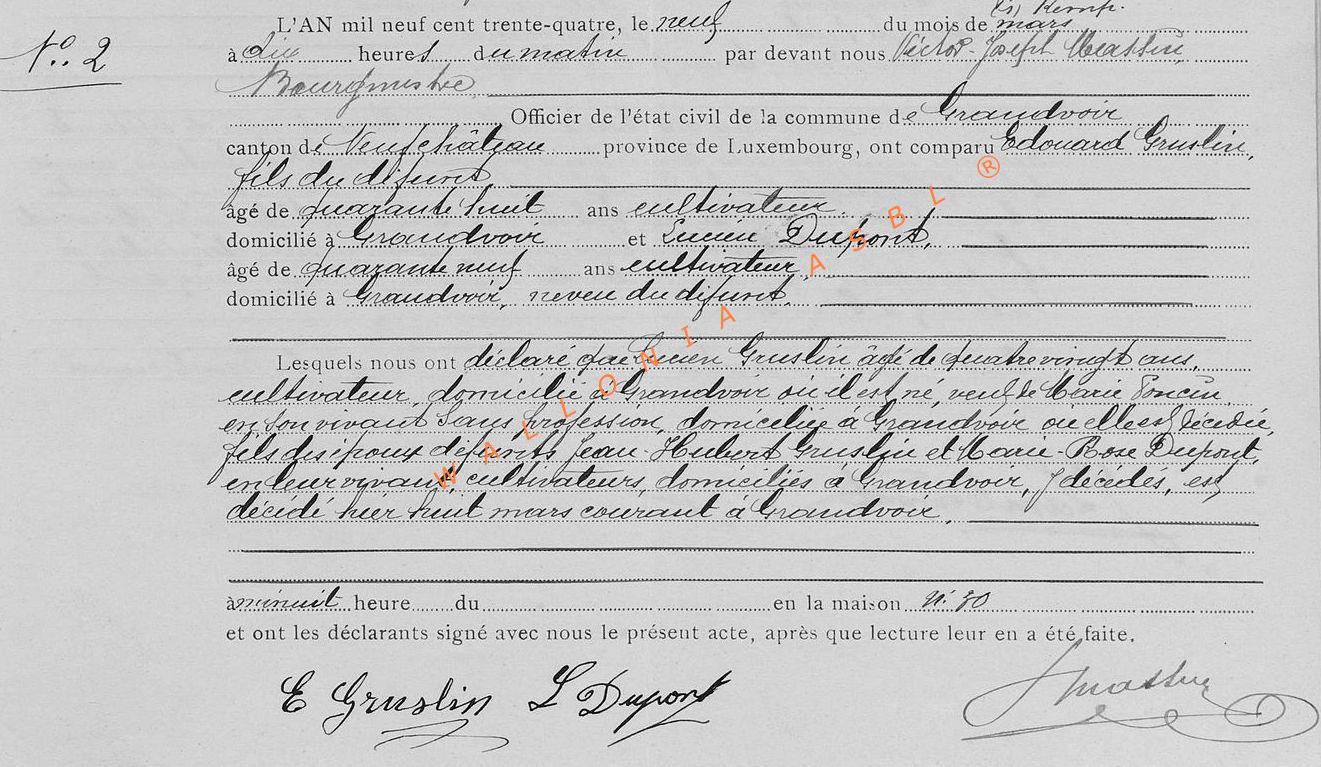 L'AN mil neuf cent trente-quatre, le neuf du mois de mars
N° 2
à dix heures du matin par devant nous Victor-Joseph Massin,
Bourgmestre
Officier de l'état civil de la commune de Grandvoir
canton de Neufchâteau province de Luxembourg, ont comparu Edouard Gruslin,
fils du défunt,
âgé de quarante huit ans cultivateur,
domicilié à Grandvoir et Lucien Dupont,
âgé de quarante neuf ans cultivateur,
domicilié à Grandvoir, neveu du défunt,
Lesquels nous ont déclaré que Lucien Gruslin âgé de quatre vingt ans,
cultivateur, domicilié à Grandvoir où il est né, veuf de Marie Poncin,
en son vivant sans profession, domiciliée à Grandvoir où elle est décédée,
fils des époux défunts Jean Hubert Gruslin et Marie-Rose Dupont,
en leur vivant, cultivateurs, domiciliés à Grandvoir, y décédés, est
décédé hier huit mars courant à Grandvoir,
à minuit heure du en la maison N° 30
et ont les déclarants signé avec nous le présent acte, après que lecture leur en a été faite.
E Gruslin L Dupont Massin
WALLONIA ASBL ®